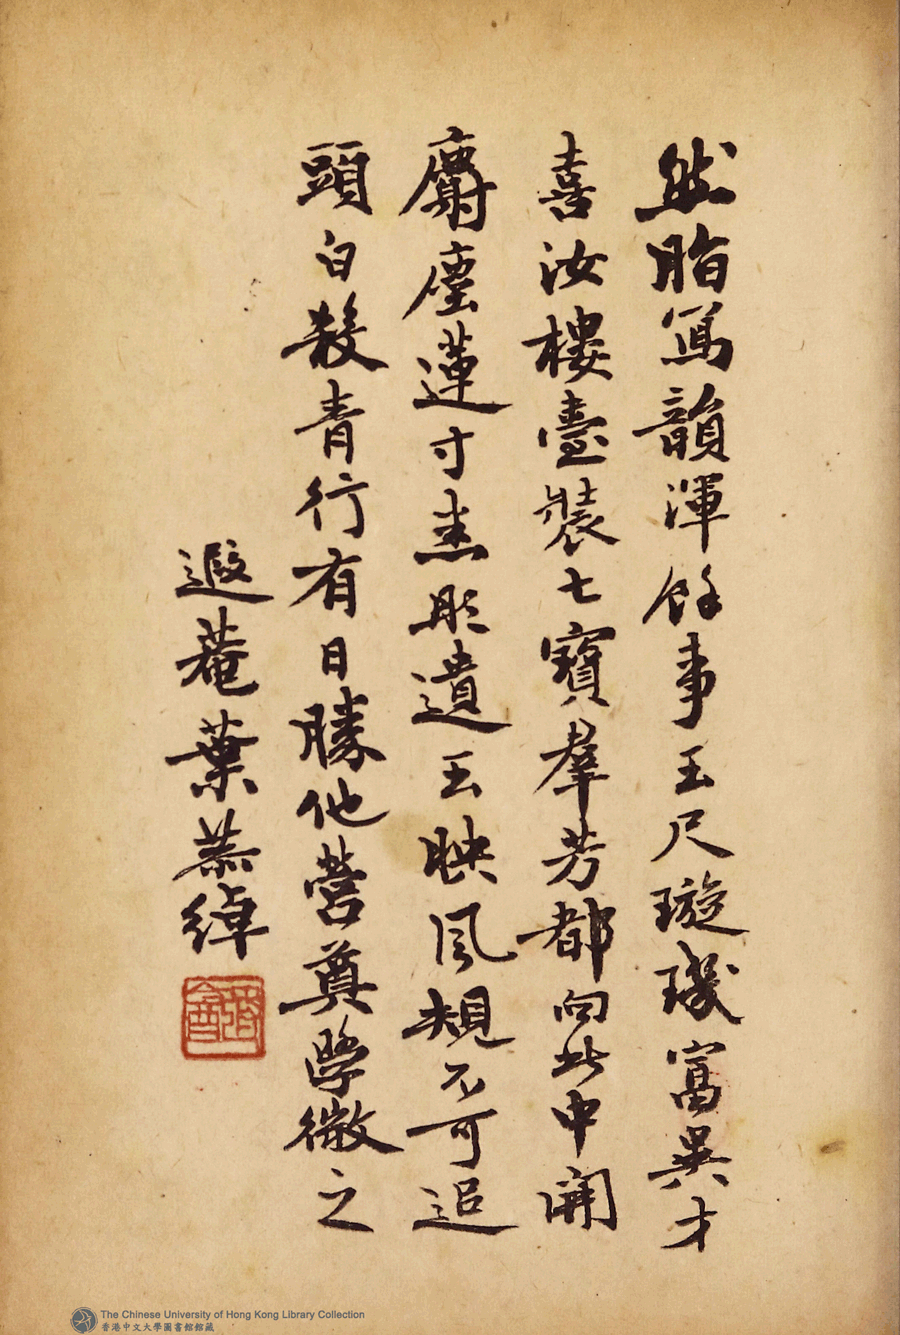 然脂寫韻渾餘事玉尺璇璣富異才
喜汝樓臺裝七寶羣芳都向此中開
麝塵蓮寸彤遺玉映風規不可追
頭白殺青行有日勝他營奠學微之
遐菴葉恭綽
The Chinese University of Hong Kong Library Collection
香港中文大學圖書館館藏